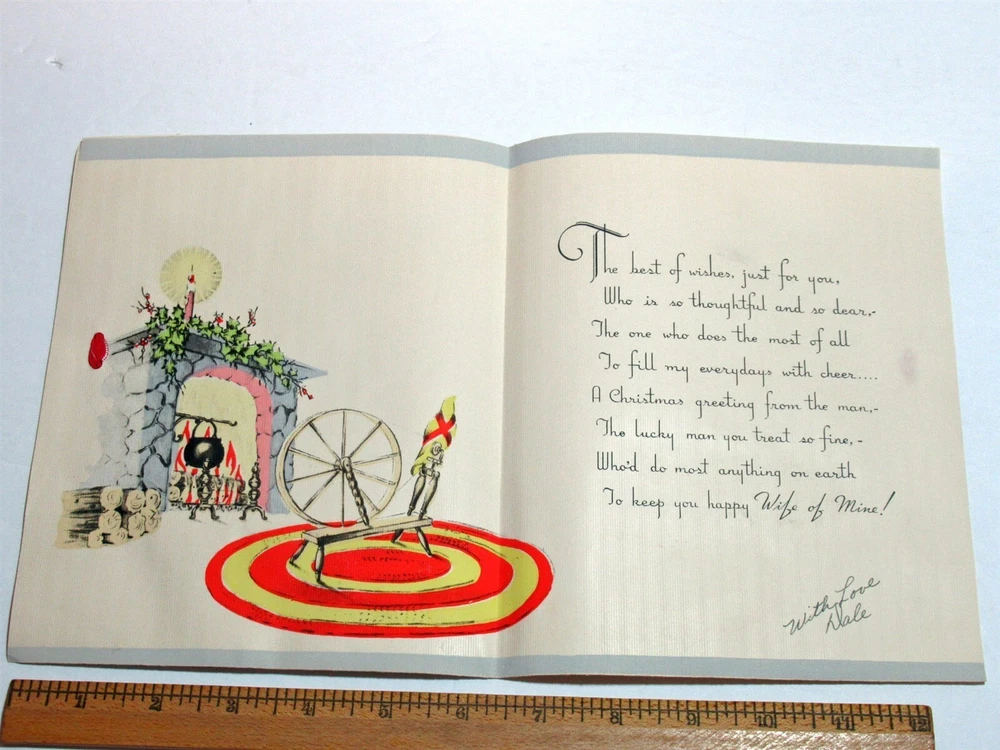 The best of wishes, just for you,
Who is so thoughtful and so dear,-
The one who does the most of all
To fill my everydays with cheer....
A Christmas greeting from the man,-
The lucky man you treat so fine,-
Who'd do most anything on earth
To keep you happy Wife of Mine!
With Love
Dale
1 2 3 4 5 6 7 8 9 10 11 12